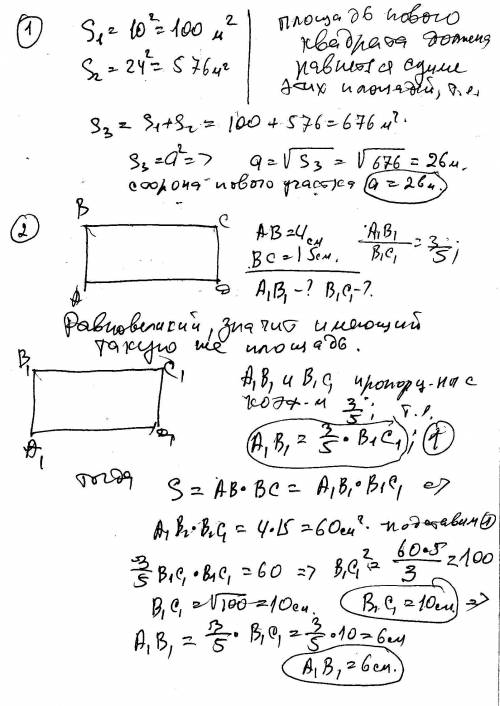 1 S₁ = 10² = 100 м²
S₂ = 24² = 576 м²
площадь нового
квадрата должна
равняться сумме
этих площадей, т.е.
S₃ = S₁+S₂ = 100 + 576 = 676 м².
S₃ = a² => a = √S₃ = √676 = 26 м.
сторона нового участка a = 26 м.
2 B C
A D
AB = 4 см
BC = 15 см.
A₁B₁/B₁C₁ = 3/5;
A₁B₁ - ? B₁C₁ - ?
Равновеликий, значит имеющий
такую же площадь.
B₁ C₁
A₁ D₁
A₁B₁ и B₁C₁ пропорц-ны с
коэф-м 3/5; т.е.
A₁B₁ = 3/5 · B₁C₁; 1
тогда
S = AB · BC = A₁B₁ · B₁C₁ =>
A₁B₁ · B₁C₁ = 4 · 15 = 60 см². подставим 1
3/5 B₁C₁ · B₁C₁ = 60 => B₁C₁² = 60·5/3 = 100
B₁C₁ = √100 = 10 см. B₁C₁ = 10 см =>
A₁B₁ = 3/5 · B₁C₁ = 3/5 · 10 = 6 см
A₁B₁ = 6 см.